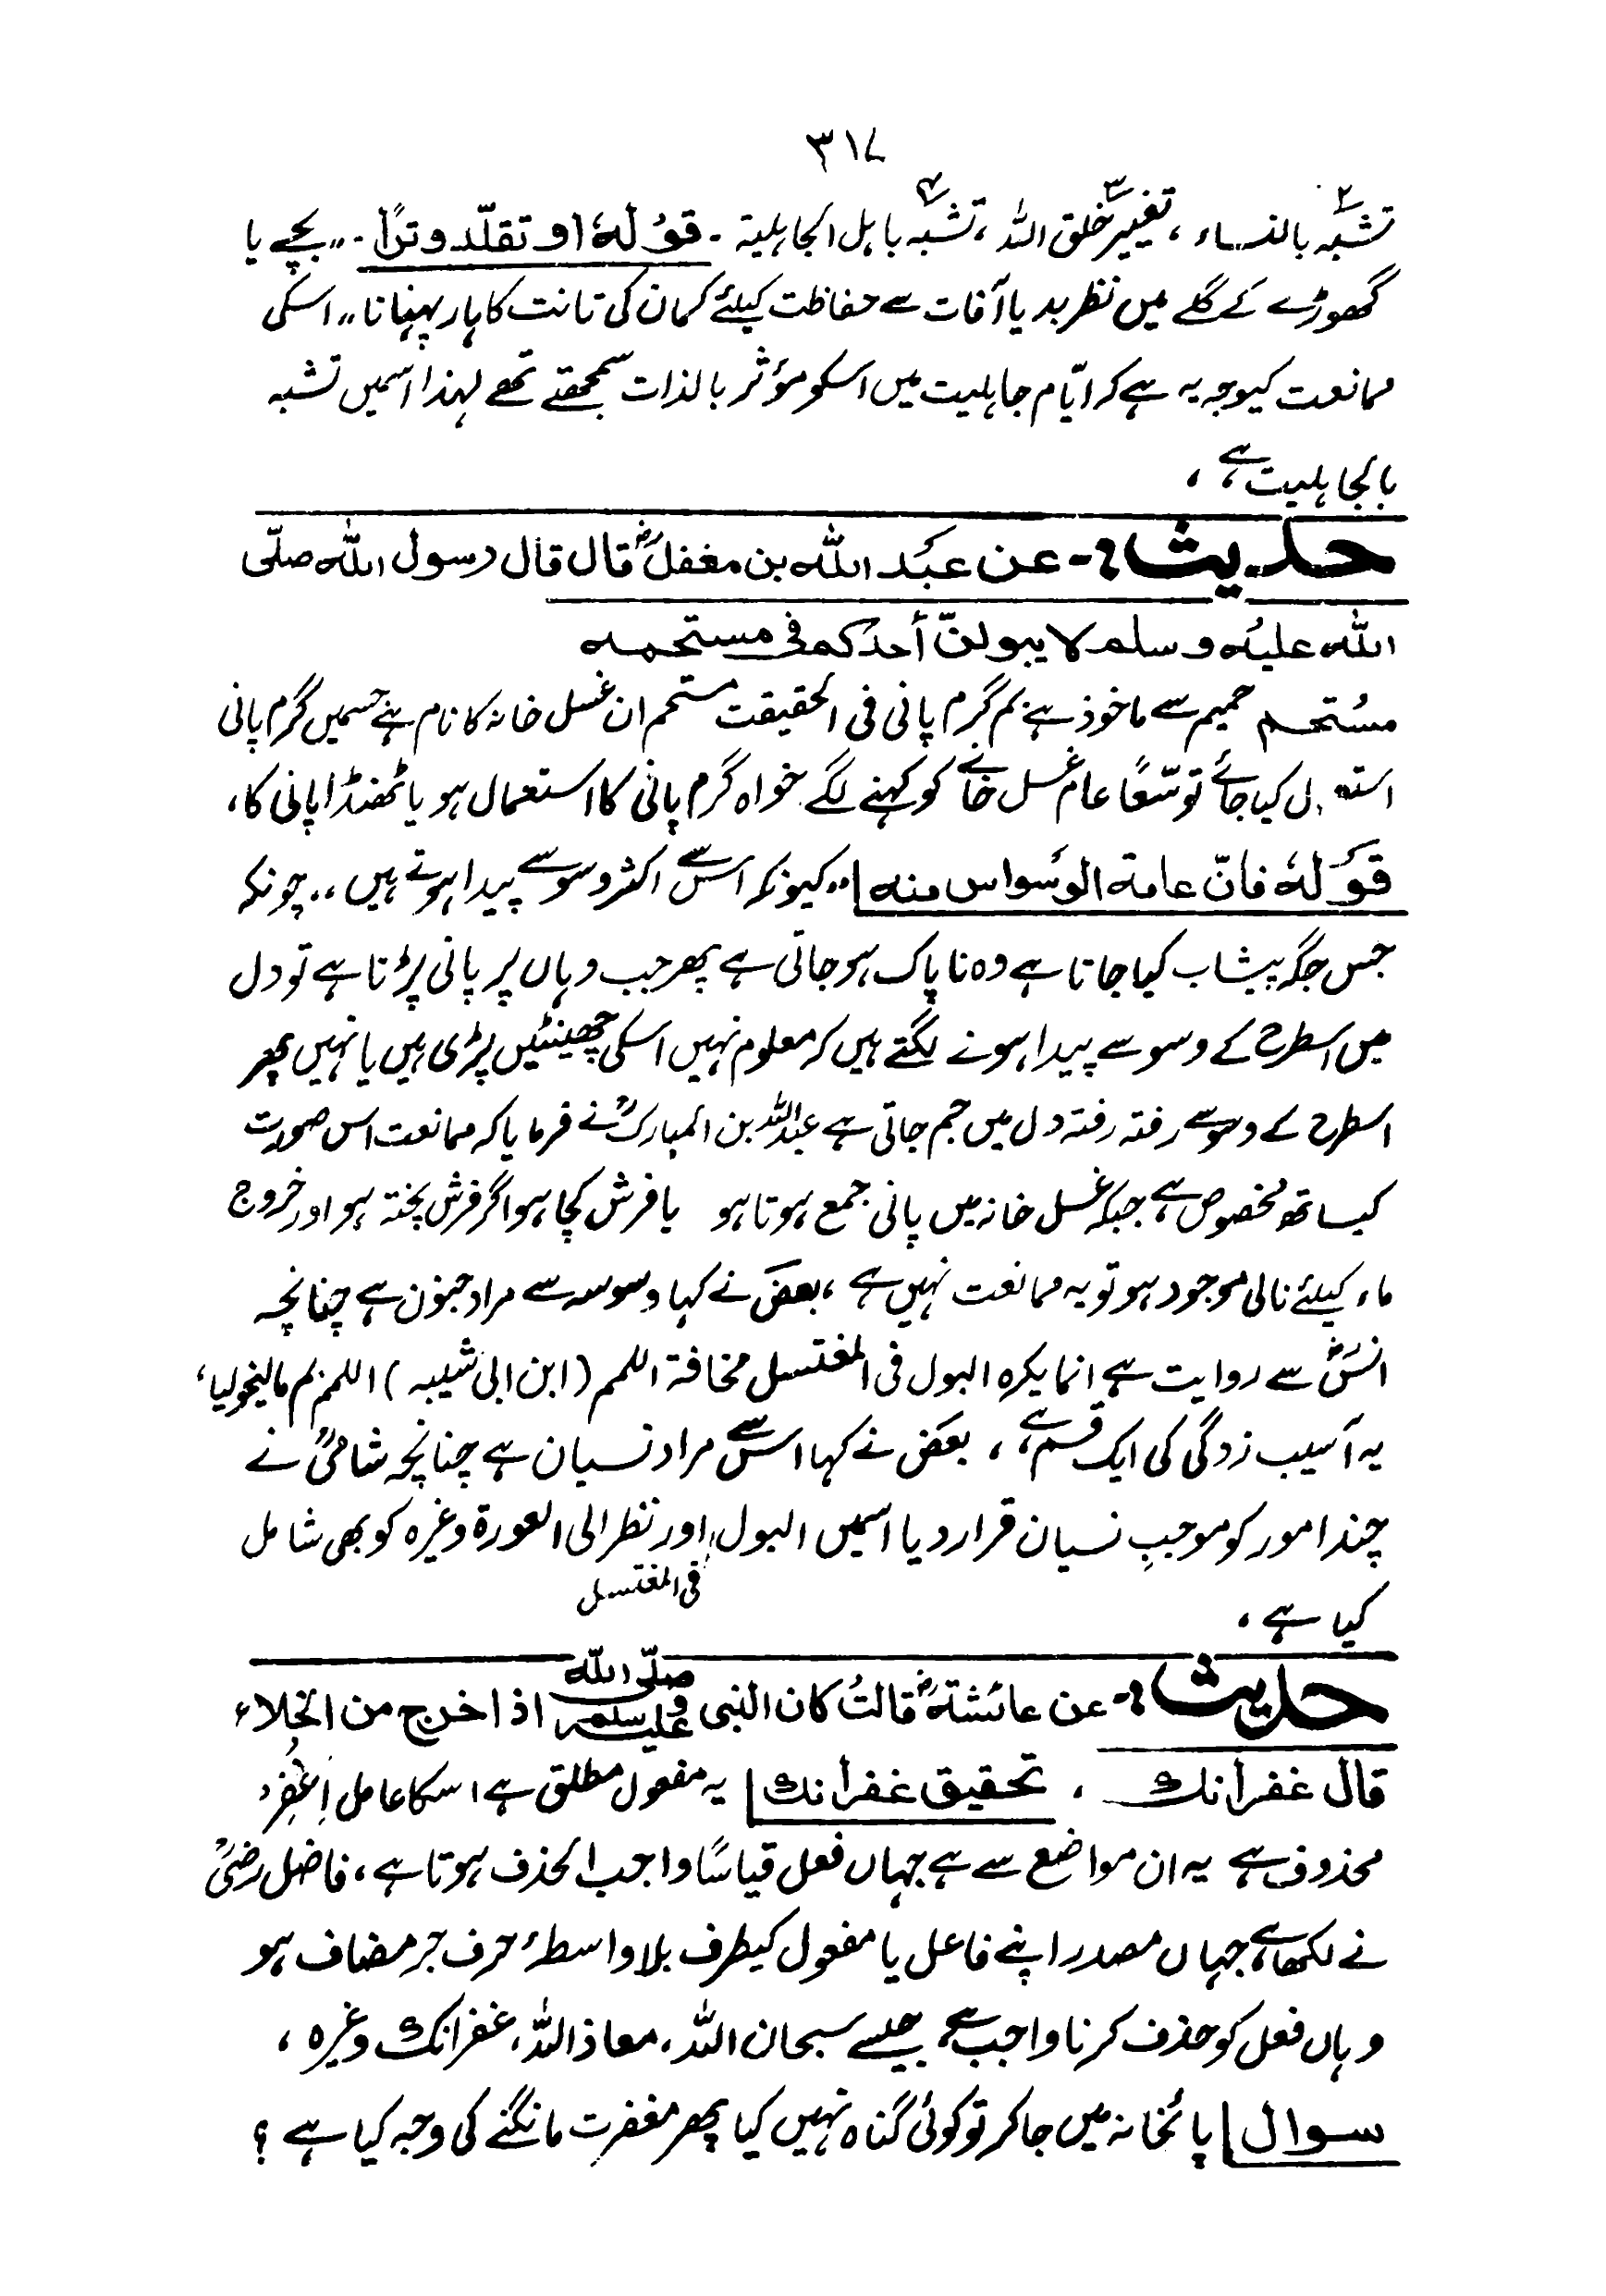 ۳۱۷
۲ تشبہ بالنساء ، ۳ تغییر خلق اللہ ، ۴ تشبہ باہل الجاہلیۃ ۔ قولہٗ او تقلّد وترًا ۔ ،، بچے یا
گھوڑے کے گلے میں نظر بد یا آفات سے حفاظت کیلئے کمان کی تانت کا ہار پہنانا ،، اسکی
ممانعت کیوجہ یہ ہے کہ ایّام جاہلیت میں اسکو مؤثر بالذات سمجھتے تھے لہذا اسمیں تشبہ
بالجاہلیت ہے ،
حدیث :- عن عبد اللہ بن مغفلؓ قال قال رسول اللہ صلّی
اللہ علیہ وسلم لا یبولنّ أحدکم فی مستحمہ
مُستحم حمیم سے ماخوذ ہے بم گرم پانی فی الحقیقت مستحم ان غسل خانہ کا نام ہے جسمیں گرم پانی
کیا جائے توسّعًا عام غسل خانے کو کہنے لگے خواہ گرم پانی کا استعمال ہو یا ٹھنڈا پانی کا ،
قولہٗ فانّ عامۃ الوسواس منہ ،، کیونکہ اس سے اکثر وسوسے پیدا ہوتے ہیں ،، چونکہ
جس جگہ پیشاب کیا جاتا ہے وہ ناپاک ہو جاتی ہے پھر جب وہاں پر پانی پڑتا ہے تو دل
میں اسطرح کے وسوسے پیدا ہونے لگتے ہیں کہ معلوم نہیں اسکی چھینٹیں پڑی ہیں یا نہیں پھر
اسطرح کے وسوسے رفتہ رفتہ دل میں جم جاتی ہے عبداللہ بن المبارکؒ نے فرمایا کہ ممانعت اس صورت
کیساتھ مخصوص ہے جبکہ غسل خانہ میں پانی جمع ہوتا ہو یا فرش کچا ہو اگر فرش پختہ ہو اور خروج
ماء کیلئے نالی موجود ہو تو یہ ممانعت نہیں ہے ، بعض نے کہا وسوسہ سے مراد جنون ہے چنانچہ
انسؓ سے روایت ہے انما یکرہ البول فی المغتسل مخافۃ اللمم (ابن ابی شیبہ) اللمم بم مالیخولیا ،
یہ آسیب زدگی کی ایک قسم ہے ، بعض نے کہا اس سے مراد نسیان ہے چنانچہ شامیؒ نے
چند امور کو موجبِ نسیان قرار دیا اسمیں البول فی المغتسل اور نظر الی العورۃ وغیرہ کو بھی شامل
کیا ہے ،
حدیث :- عن عائشۃؓ قالت کان النبی صلّی اللہ علیہ وسلم اذا خرج من الخلاء
قال غفرانک ، تحقیق غفرانک یہ مفعول مطلق ہے اسکا عامل اِغْفِرْ
محذوف ہے یہ ان مواضع سے ہے جہاں فعل قیاسًا واجب الحذف ہوتا ہے ، فاضل رضیؒ
نے لکھا ہے جہاں مصدر اپنے فاعل یا مفعول کیطرف بلا واسطۂ حرف جر مضاف ہو
وہاں فعل کو حذف کرنا واجب ہے جیسے سبحان اللہ ، معاذ اللہ ، غفرانک وغیرہ ،
سوال پائخانہ میں جا کر تو کوئی گناہ نہیں کیا پھر مغفرت مانگنے کی وجہ کیا ہے ؟